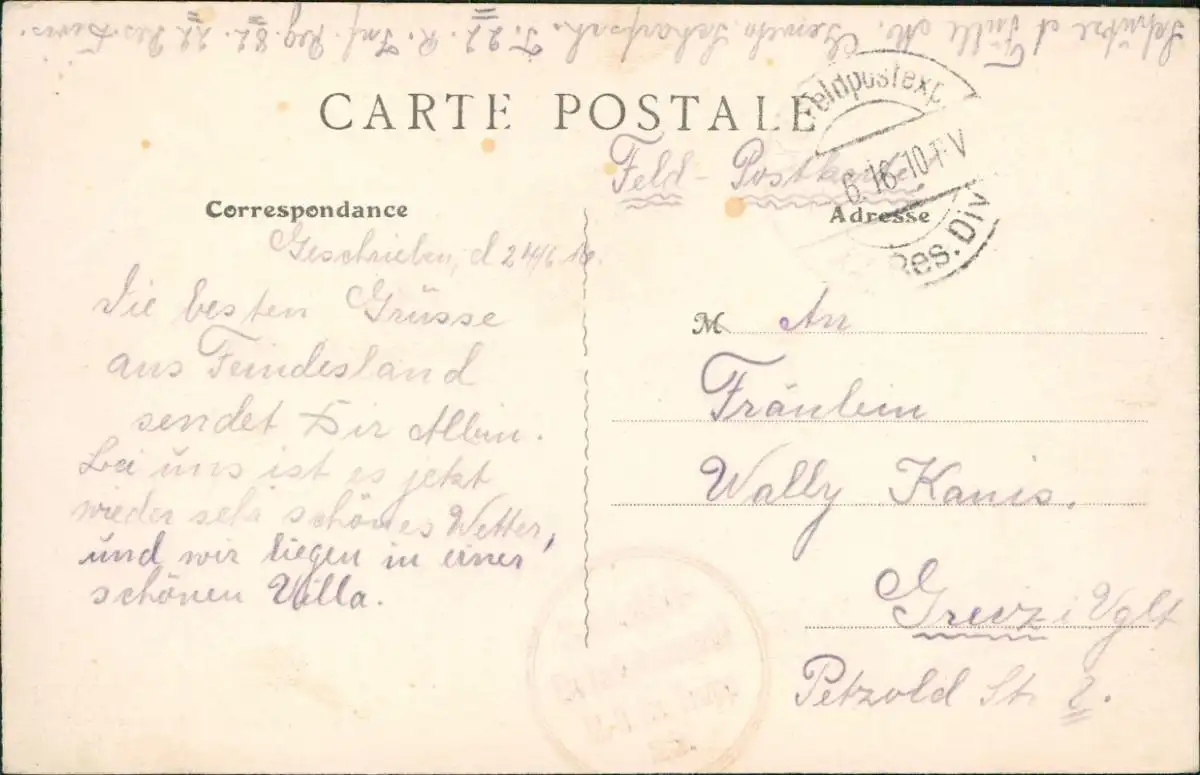 CARTE POSTALE
Feld-Postkarte
Feldpostexp.
6.16.10-11V
Res. Div
Correspondance
Adresse
Geschrieben, d 24/6 16.
Die besten Grüsse
aus Feindesland
sendet Dir Albin.
Bei uns ist es jetzt
wieder sehr schönes Wetter,
und wir liegen in einer
schönen Villa.
M An
Fräulein
Wally Kanis.
Greiz i Vgtl
Petzold Str. 2.
Schütze A R. Inf. Reg. 82. 22 Res. Divis.